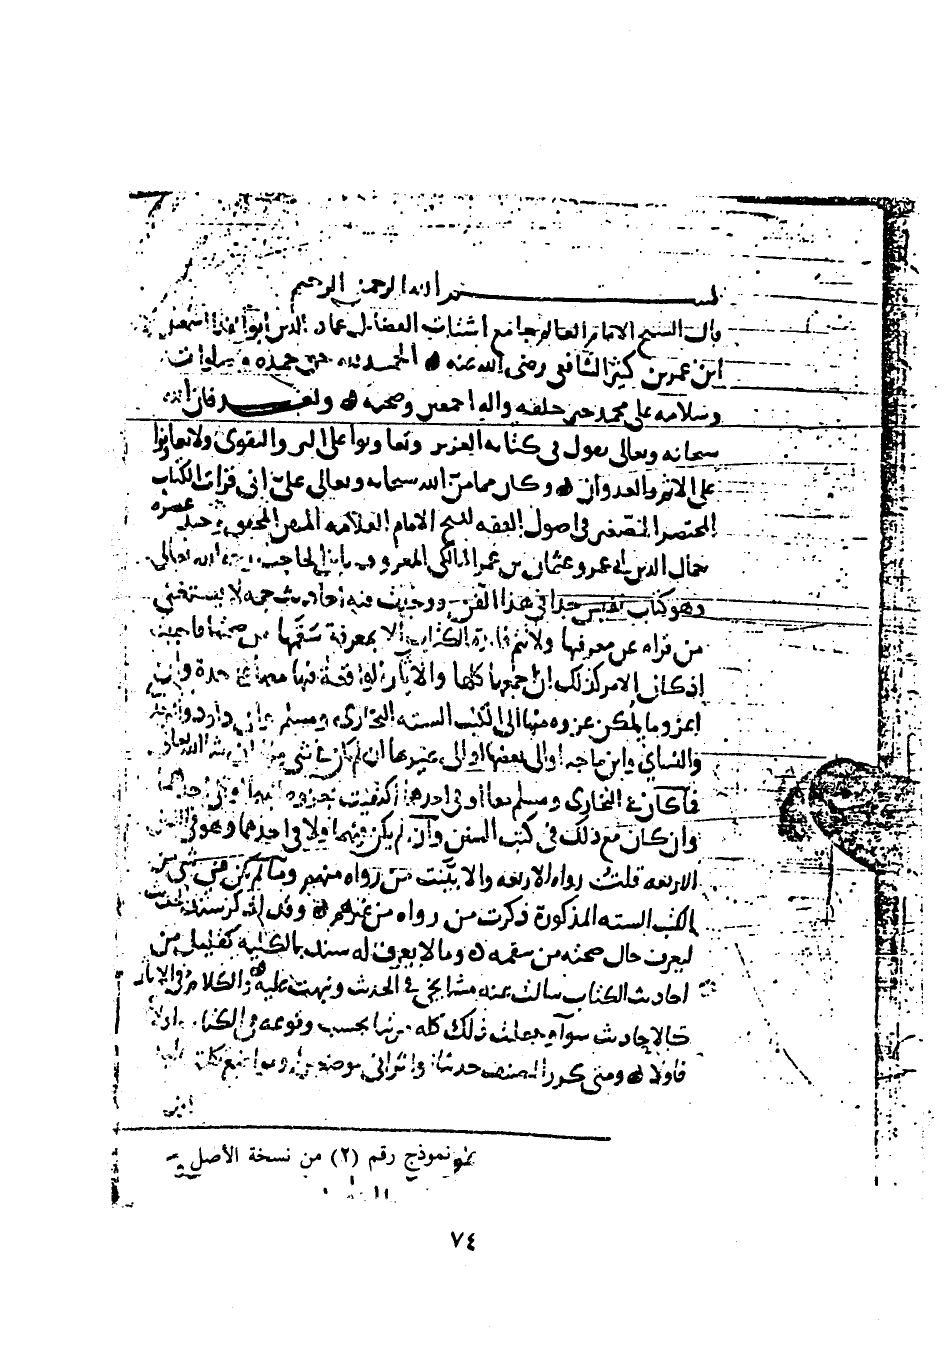 بسم الله الرحمن الرحيم
قال الشيخ الامام العالم جامع اشتات الفضايل عماد الدين ابو الفدا اسمعيل
ابن عمر بن كثير الشافعي رضي الله عنه الحمد لله حق حمده وصلوات
وسلامه على محمد خير خلقه واله اجمعين وصحبه وبعد فان الله
سبحانه وتعالى يقول في كتابه العزيز وتعاونوا على البر والتقوى ولا تعاونوا
على الاثم والعدوان وكان مما من الله سبحانه وتعالى علي اني قرات الكتاب
المختصر الصغير في اصول الفقه للشيخ الامام العلامة المحقق وحيد عصره
جمال الدين ابي عمرو عثمان بن عمر المالكي المعروف بابن الحاجب الله تعالى
وهو كتاب نفيس جدا في هذا الفن ووجدت فيه احاديث جمة لا يستغني
من قراه عن معرفتها ولا تتم فايدة الكتاب الا بمعرفة سقمها من صحتها فاحببت
اذ كان الامر كذلك ان اجمعها كلها والاثار الواقعة فيها معها على حدة وان
اعزو ما امكن عزوه منها الى الكتب الستة البخاري ومسلم وابي داود والترمذي
والنسائي وابن ماجه او الى بعضها او الى غيرها ان لم يكن في شي منها ان شا الله تعالى
فما كان في البخاري ومسلم معا او في احدهما اكتفيت بعزوه اليهما او الى احدهما
وان كان مع ذلك في كتب السنن وان لم يكن فيهما ولا في احدهما وهو في السنن
الاربعة قلت رواه الاربعة والا بينت من رواه منهم وما لم يكن في شي من
الكتب الستة المذكورة ذكرت من رواه من غيرهم وقد اذكر سند الحديث
ليعرف حال صحته من سقمه وما لا يعرف له سند بالكلية كقليل من
احاديث الكتاب سالت عنه مشايخي في الحديث ونبهت عليه والكلام في الاثار
كالاحاديث سواء وجعلت ذلك كله مرتبا بحسب وقوعه في الكتاب اولا
فاولا ومتى كرر المصنف حديثا او اثرا في موضعين او مواضع تكلمت عليه
نموذج رقم (٢) من نسخة الأصل
٧٤